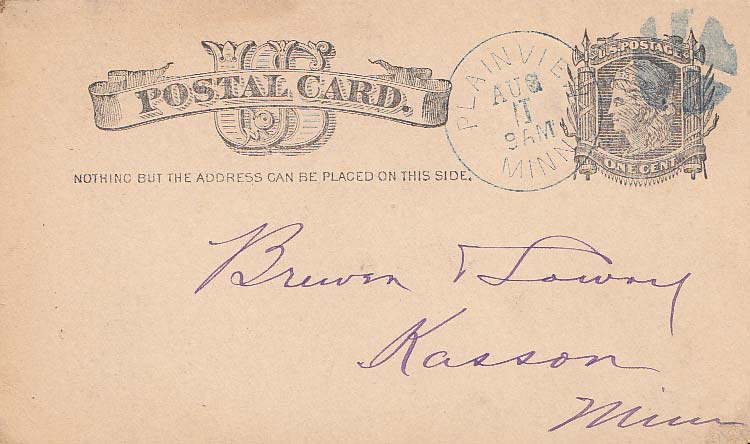 US
POSTAL CARD.
NOTHING BUT THE ADDRESS CAN BE PLACED ON THIS SIDE.
PLAINVIEW
AUG
11
9AM
MINN
U.S. POSTAGE
ONE CENT
Brewer & Lowry
Kasson
Minn